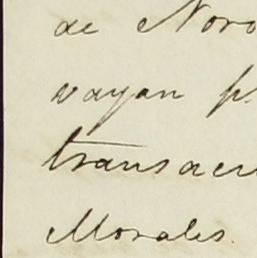 de Noro
vayan p
transacu
Morales.